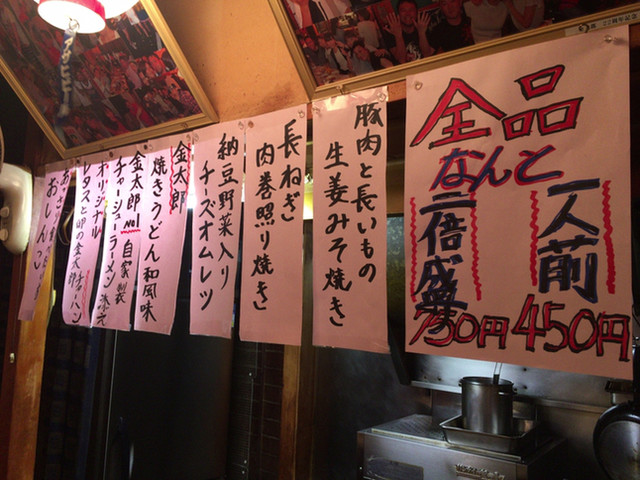 全品
なんと
一人前
450円
二倍盛
750円
豚肉と長いもの
生姜みそ焼き
長ねぎ
肉巻照り焼き
納豆野菜入り
チーズオムレツ
金太郎
焼きうどん和風味
金太郎No1
チャーシューラーメン
自家製
オリジナル
レタスと卵の金太郎チャーハン
あさ
おしんこ